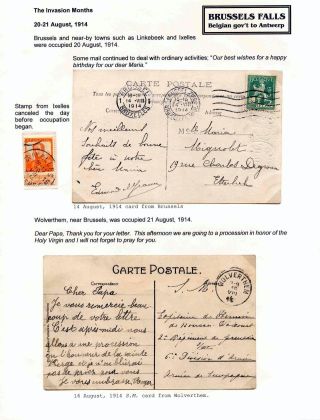 The Invasion Months
20-21 August, 1914
BRUSSELS FALLS
Belgian gov't to Antwerp
Brussels and near-by towns such as Linkobeek and Ixelles
were occupied 20 August, 1914.
Some mail continued to deal with ordinary activities: "Our best wishes for a happy
birthday for our dear Maria."
Stamp from Ixelles
canceled the day
before occupation
began.
CARTE POSTALE
BRUXELLES
1914
Nos meilleurs
souhaits de bonne
fête à notre
chère Maria
Melle Maria
Mignolet
Rue Charles Degroux
Etterbeek
14 August, 1914 card from Brussels
Wolverthem, near Brussels, was occupied 21 August, 1914.
Dear Papa, Thank you for your letter. This afternoon we are going to a procession in honor of the
Holy Virgin and I will not forget to pray for you.
CARTE POSTALE.
Correspondance
S.M.
WOLVERTHEM
Cher Papa
Je vous remercie beau
coup de votre lettre
C'est après-midi nous
allons a une procession
en l'honneur de la sainte
Vierge
prier pour vous.
Je vous embrasse,
6e Division d'Armée
Armée de Campagne
14 August, 1914 S.M. card from Wolverthem.